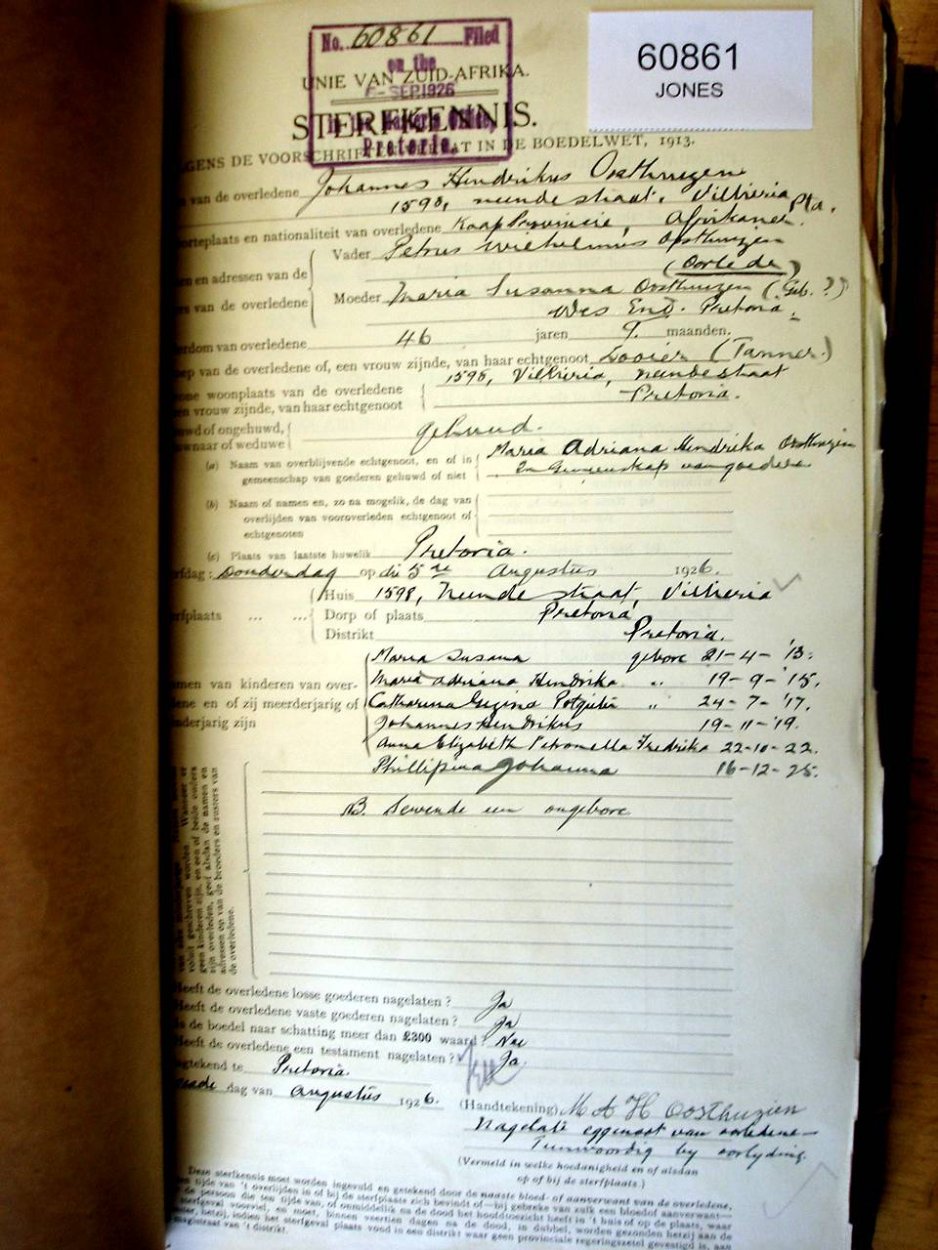 No. 60861 Filed
on the
6-SEP.1926
in the Master's Office,
Pretoria.
60861
JONES
UNIE VAN ZUID-AFRIKA.
STERFKENNIS.
GENS DE VOORSCHRIFTEN VERVAT IN DE BOEDELWET, 1913.
van de overledene Johannes Hendrikus Oosthuizen
1598, neende straat, Villieria Pta.
orteplaats en nationaliteit van overledene Kaap Provincie, Afrikaner.
Vader Petrus Wilhelmus Oosthuizen
(Oorlede)
en en adressen van de
rs van de overledene
Moeder Maria Susanna Oosthuizen (Geb. ?)
Wes End. Pretoria.
erdom van overledene 46 jaren 9. maanden.
ep van de overledene of, een vrouw zijnde, van haar echtgenoot Looier (Tanner.)
one woonplaats van de overledene 1598, Villieria, neende straat
en vrouw zijnde, van haar echtgenoot Pretoria.
uwd of ongehuwd,
wnaar of weduwe gehuud.
(a) Naam van overblijvende echtgenoot, en of in Maria Adriana Hendrika Oosthuizen
gemeenschap van goederen gehuwd of niet In Gemeenskap van goedere
(b) Naam of namen en, zo na mogelik, de dag van
overlijden van vooroverleden echtgenoot of
echtgenoten
(c) Plaats van laatste huwelik Pretoria.
rfdag: Donderdag op die 5de Augustus 1926.
Huis 1598, Neende straat, Villieria
rfplaats ... ... Dorp of plaats Pretoria
Distrikt Pretoria.
Maria Susana gebore 21-4-'13.
Maria Adriana Hendrika. " 19-9-'15.
men van kinderen van over-
dene en of zij meerderjarig of Catharina Gezina Potgieter " 24-7-'17.
nderjarig zijn Johannes Hendrikus 19-11-'19.
Anna Elizabeth Petronella Fredrika 22-10-22.
Phillipina Johanna 16-12-25.
NB. Sewende een ongebore
geen kinderen zijn, en een of beide ouders
zijn overleden, geef alsdan de namen en
adressen op van de broeders en zusters van
de overledene.
Heeft de overledene losse goederen nagelaten? Ja
Heeft de overledene vaste goederen nagelaten? Ja
Is de boedel naar schatting meer dan £300 waard? Nee
Heeft de overledene een testament nagelaten? Ja.
getekend te Pretoria.
dag van Augustus 1926.
(Handtekening) M A H Oosthuizien
Nagelate eggenoot van oorledene—
Teenwoordig by oorlyding.
(Vermeld in welke hoedanigheid en of alsdan
op of bij de sterfplaats.)
Deze sterfkennis moet worden ingevuld en getekend door de naaste bloed- of aanverwant van de overledene,
en tijde van 't overlijden in of bij de sterfplaats zich bevindt of—bij gebreke van zulk een bloed of aanverwant—
de persoon die ten tijde van, of onmiddelik na de dood het hoofdtoezicht heeft in 't huis of op de plaats, waar
sterfgeval voorviel, en moet, binnen veertien dagen na de dood, in dubbel, worden gezonden hetzij aan de
ester, hetzij, indien het sterfgeval plaats vond in een distrikt waar geen provinciale regeringszetel gevestigd is, aan
magistraat van 't distrikt.